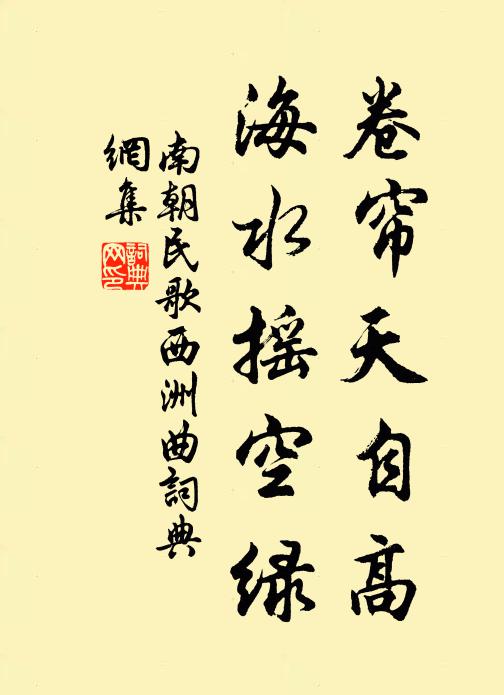 卷帘天自高
海水摇空绿
南朝民歌西洲曲詞典
網集
詞典
网印